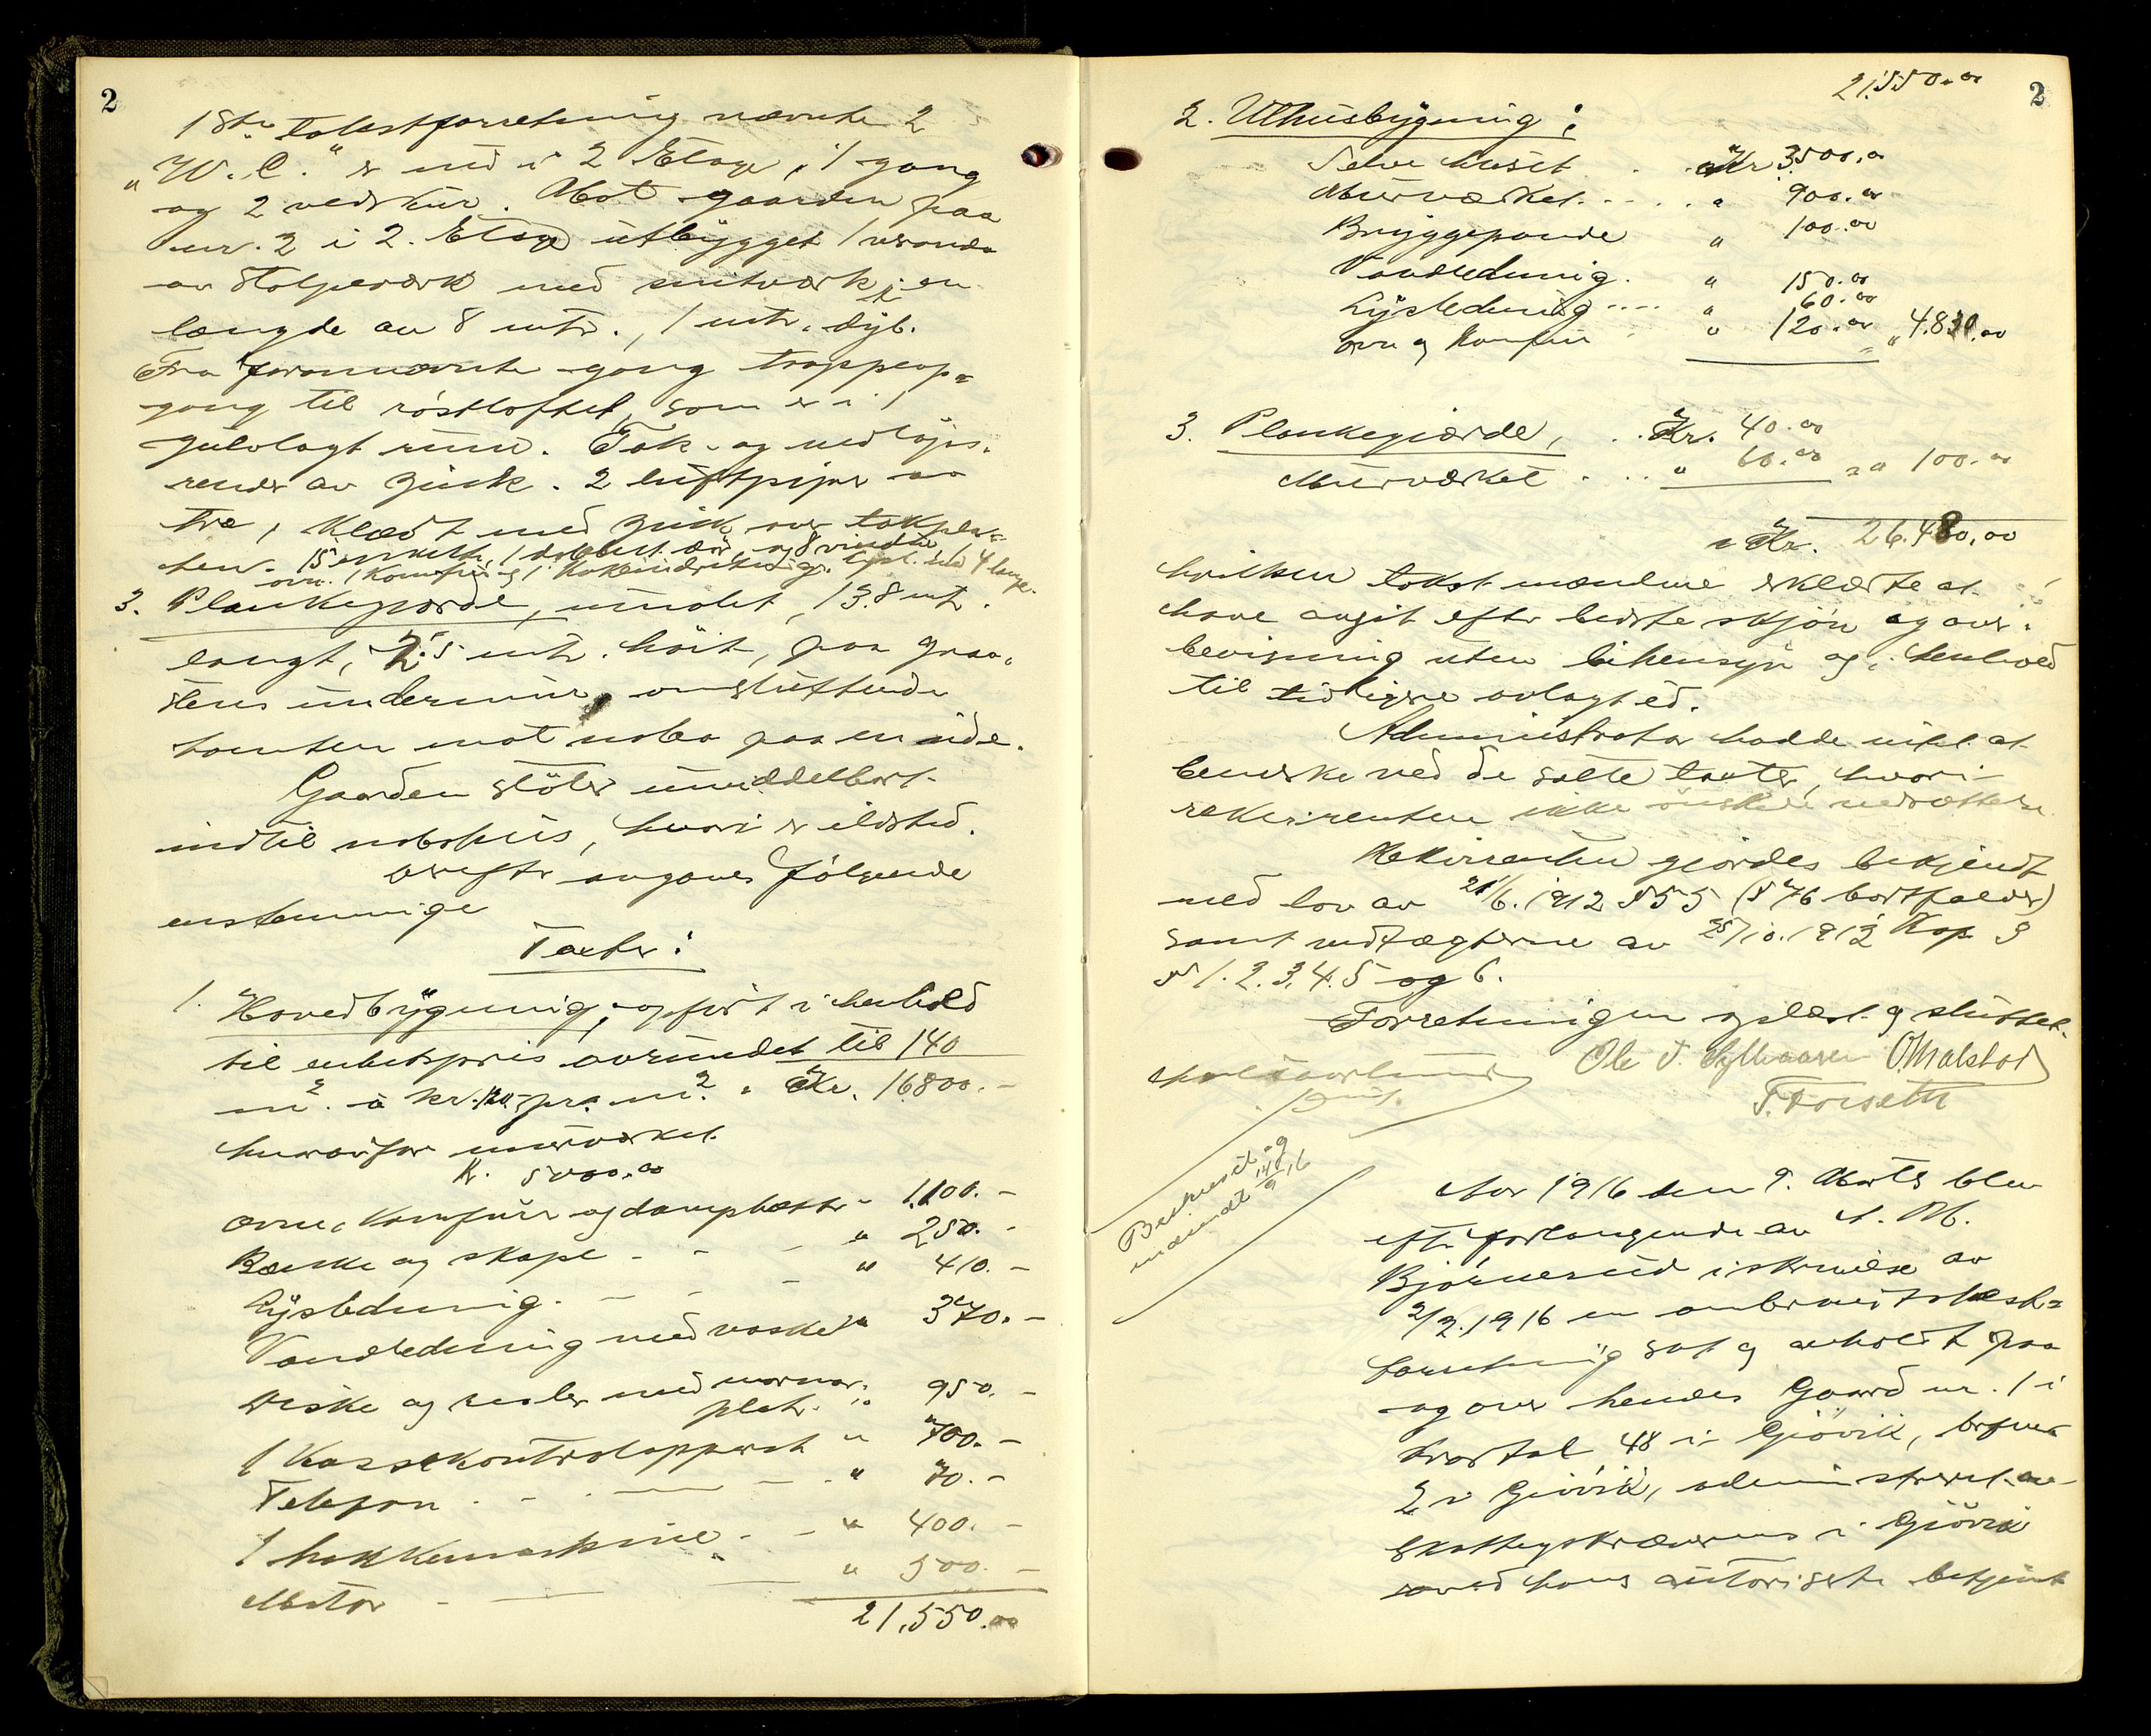 2
1ste takstforretning nævnte 2
"W.C." er ned i 2 Etage, 1 gang
og 2 vedskur. Mot gaarden paa
nr. 2 i 2. Etage utbygget 1 veranda
av stolpeværk med snitværk i en
længde av 8 mtr., 1 mtr. dyb.
Fra forannævnte gang trappeop=
gang til röstloftet, som er i 1
gulvlagt rum. Tak- og nedløps-
render av zink. 2 luftpiper av
træ, klædt med zink over takplan=
ten. 15 enkelte, 1 dobbelt dör, og 8 vinduer,
ovn. 1 Komfur og 1 lysl. 4 lampe.
3. Plankegjærde, umalet, 13.8 mtr.
langt, 2.5 mtr. höit, paa graa-
stens undermur, omsluttende
tomten mot nabo paa en side.
Gaarden stöter umiddelbart
indtil nabohus, hvori er ildsted.
Derefter avgaves følgende
enstemmige
Taxter:
1. Hovedbygning; opført i henhold
til enhetspris avrundet til 140
m². à kr. 120,- pr. m². " Kr. 16800.-
hvorav for murværket
K. 5000.00
Ovne, Komfur og dampbætter - 1.100.-
Bænke og skape - - - " 250.-
Lysledning. - - - " 410.-
Vandledning med vasker " 370.-
Diske og reoler med marmor-
plate. " 950.-
1 Kassekontrolapparat " 700.-
Telefon - - - " 70.-
1 hakkemaskine - - " 400.-
Motor - - " 500.-
21,550.00
21,550.00
2
2. Uthusbygning:
Selve huset . . Kr. 3500.00
Murværket. - - - . " 900.00
Bryggepande " 100.00
Vandledning. " 150.00
Lysledning .... " 60.00
Ovn og Komfur " 120.00 " 4.830.00
3. Plankegjærde, . . Kr. 40.00
Murværket . . . " 60.00 = " 100.00
= Kr. 26.480,00
hvilken takst mændene erklærte at
have avgit efter bedste skjön og over-
bevisning uten bihensyn og i henhold
til tidligere avlagt ed.
Administrator hadde intet at
bemerke ved de satte taxter, hvori
rekvirenten ikke ønskede nedsættelse.
Rekvirenten gjordes bekjendt
med lov av 21/6. 1912 § 55 (§ 76 bortfalder)
samt vedtægterne av 25/10. 1912 Kap 9
§§ 1. 2. 3. 4. 5 og 6.
Forretningen oplæst og sluttet.
Ole T. Sylhaasen O. Malstad
T. Forseth
Beskrevet og
inøendt 14/9 16
Aar 1916 den 9. Marts blev
efter forlangende av A. M.
Bjørnerud i skrivelse av
2/2. 1916 en ombrandtakst=
forretning sat og avholdt paa
og over hendes Gaard nr. 1 i
kvartal 48 i Gjövik, brfnr
2 i Gjövik, administreret av
Skattegskræverens i Gjövik
ved hans autoriserte betjent